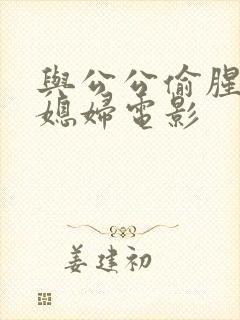 與公公偷腥
媳婦電影
姜建初